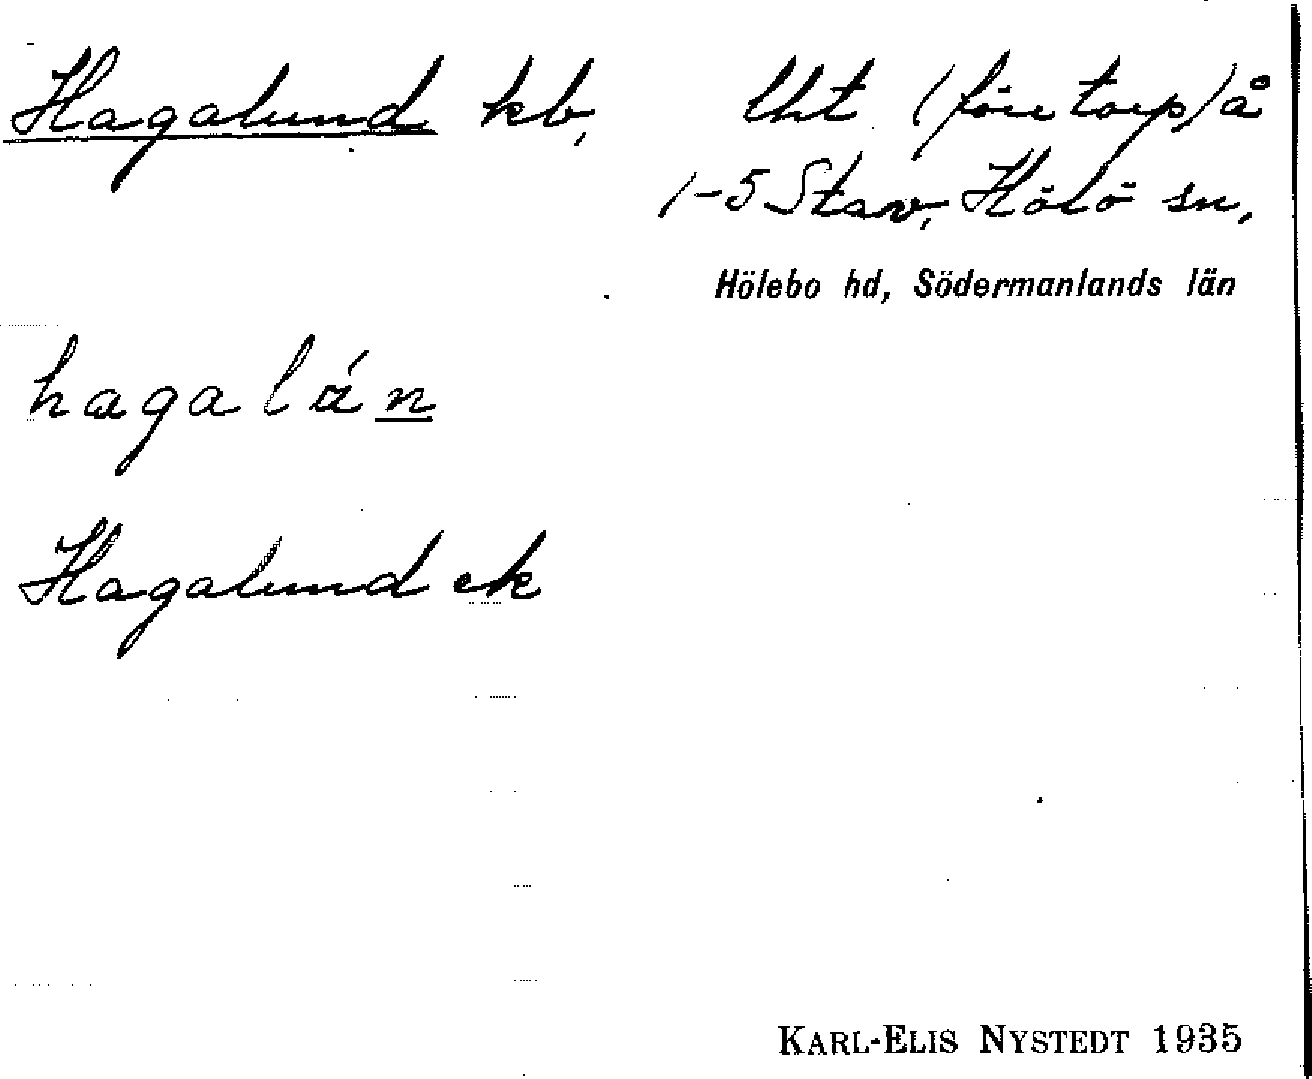 Hagalund kb,
lht (före torp) å
1-5 Stav, Hölö sn,
Hölebo hd, Södermanlands län
hagalán
Hagalund ek
KARL-ELIS NYSTEDT 1935